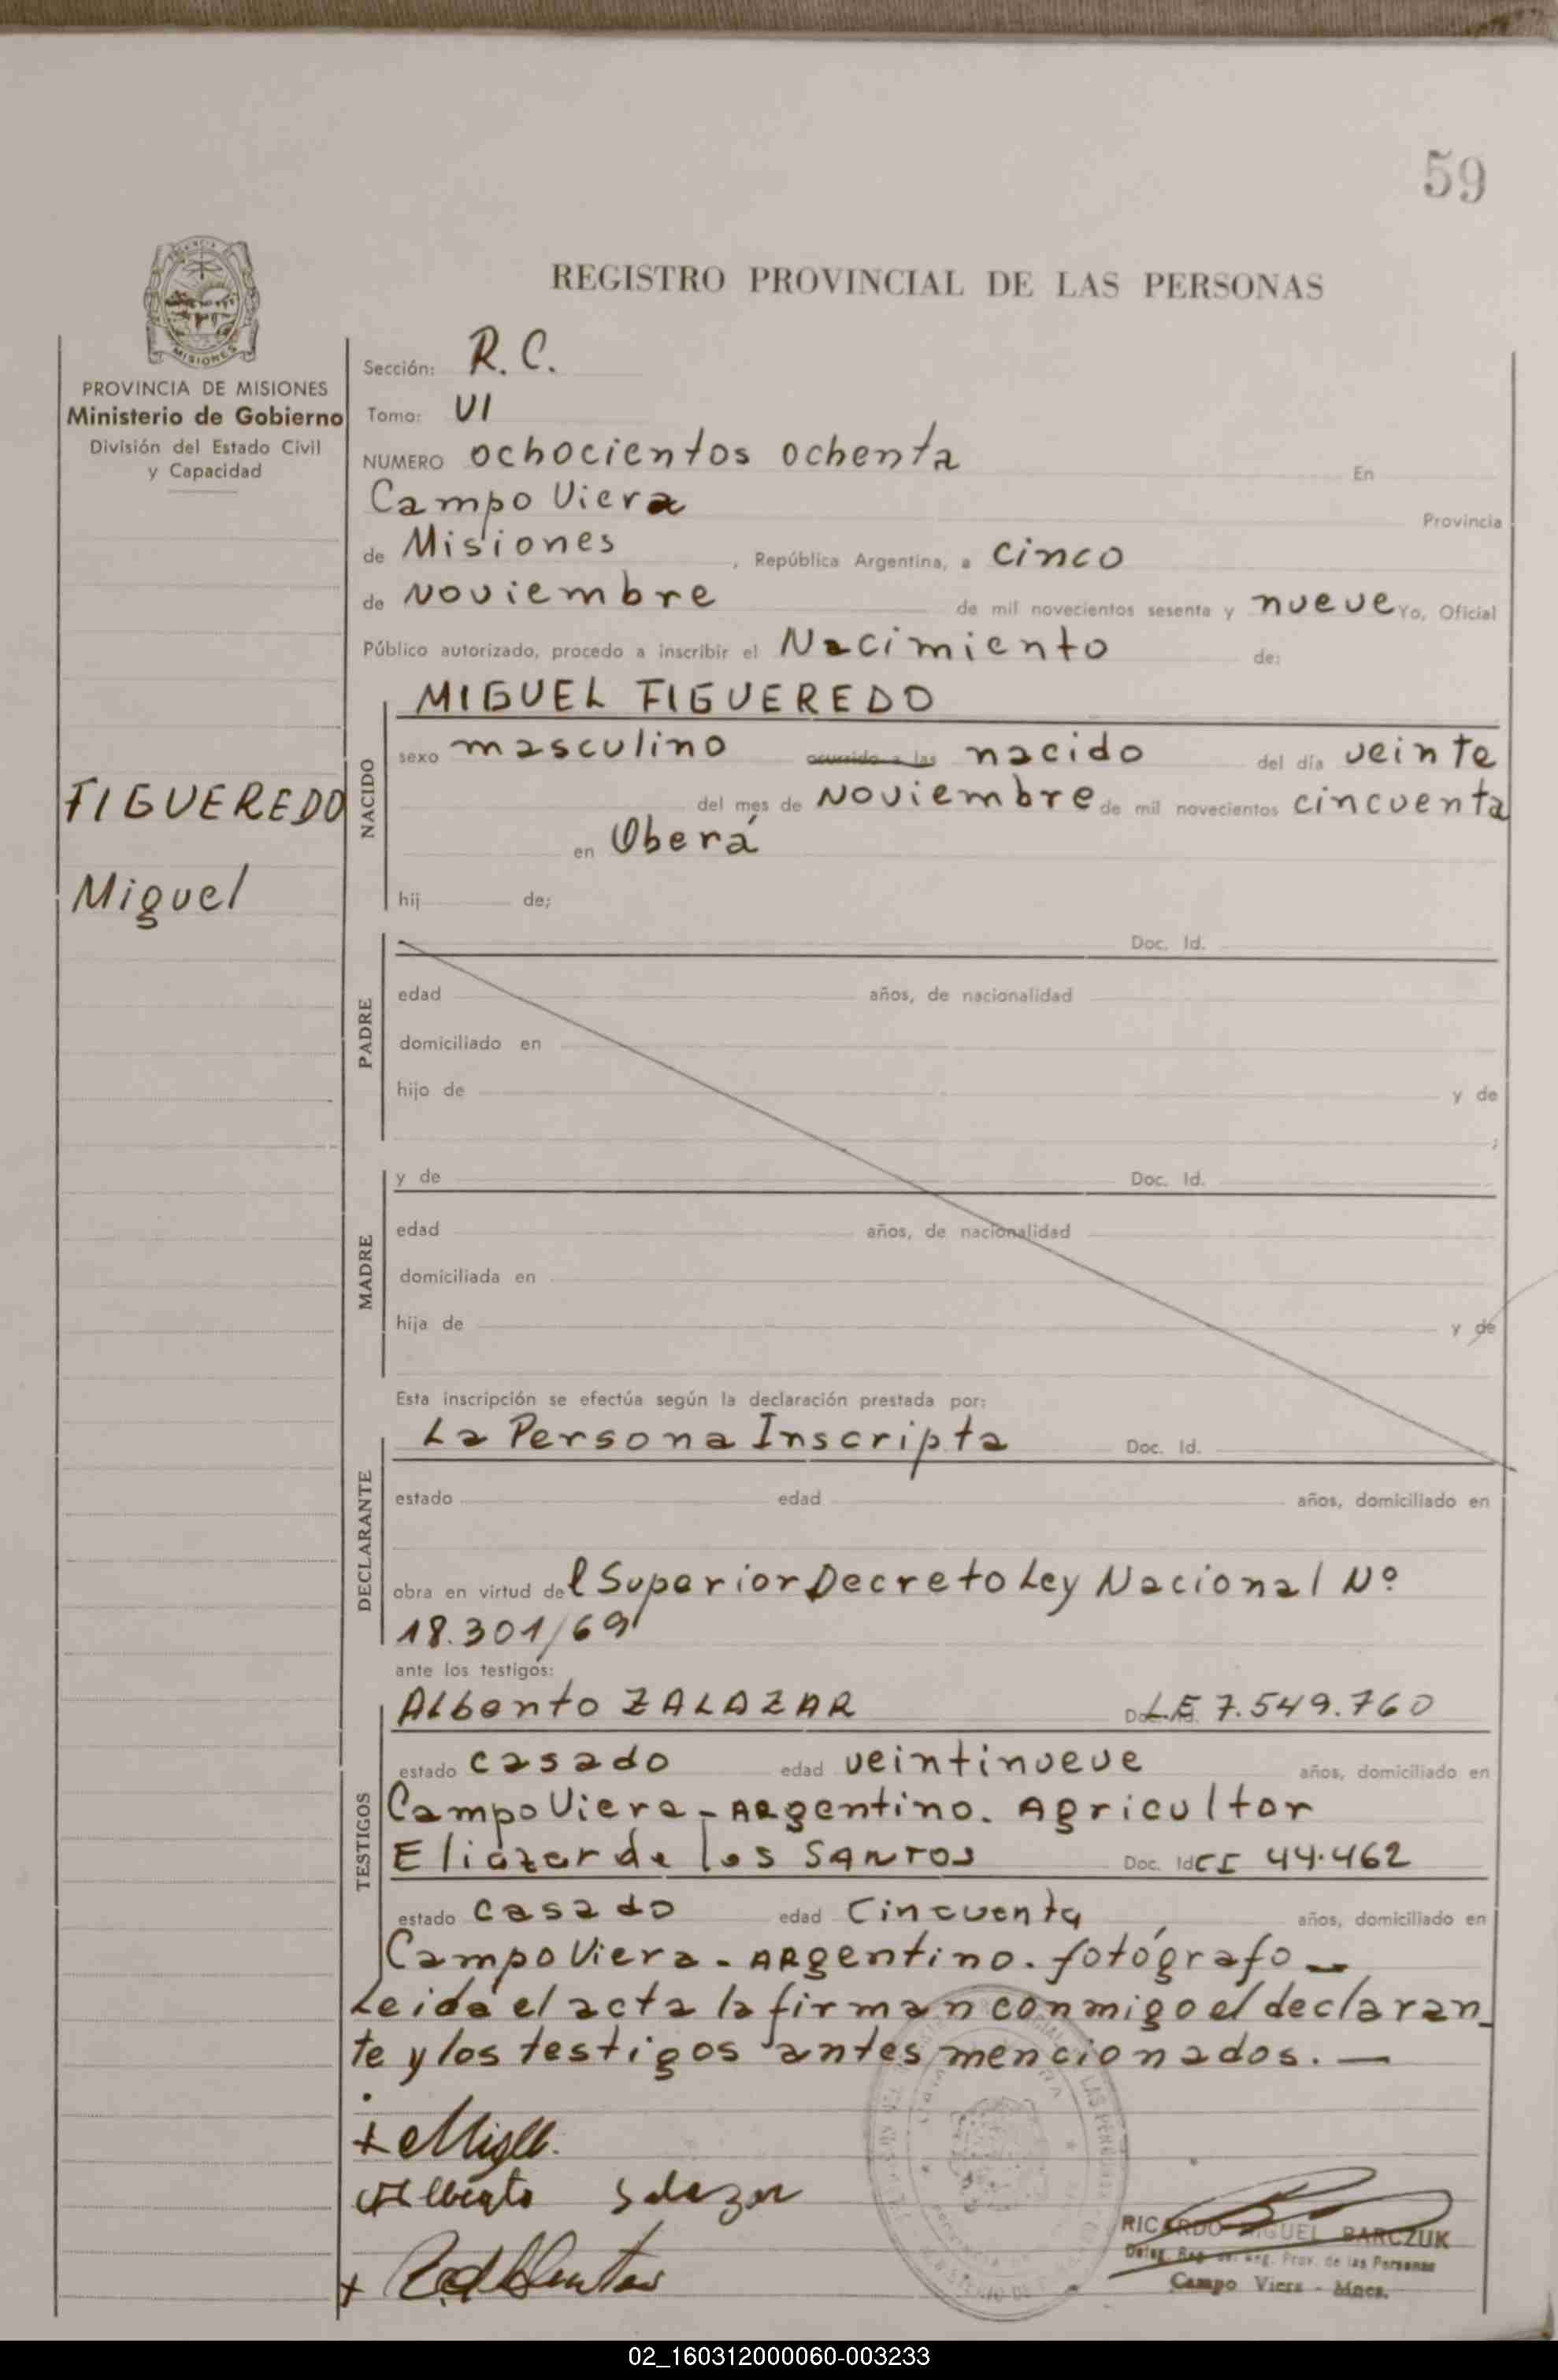 59
REGISTRO PROVINCIAL DE LAS PERSONAS
MISIONES
PROVINCIA DE MISIONES
Ministerio de Gobierno
División del Estado Civil
y Capacidad
FIGUEREDO
Miguel
Sección: R. C.
Tomo: VI
NUMERO ochocientos ochenta En
Campo Viera Provincia
de Misiones, República Argentina, a cinco
de Noviembre de mil novecientos sesenta y nueve Yo, Oficial
Público autorizado, procedo a inscribir el Nacimiento de:
NACIDO
MIGUEL FIGUEREDO
sexo masculino ocurrido a las nacido del día veinte
del mes de Noviembre de mil novecientos cincuenta
en Oberá
hij de;
PADRE
Doc. Id.
edad años, de nacionalidad
domiciliado en
hijo de y de
;
MADRE
y de Doc. Id.
edad años, de nacionalidad
domiciliada en
hija de y de
Esta inscripción se efectúa según la declaración prestada por:
DECLARANTE
La Persona Inscripta Doc. Id.
estado edad años, domiciliado en
obra en virtud del Superior Decreto Ley Nacional Nº
18.301/69
ante los testigos:
TESTIGOS
Alberto ZALAZAR L.E 7.549.760
estado casado edad veintinueve años, domiciliado en
Campo Viera - Argentino. Agricultor
Eliazar de los SANTOS Doc. Id CI 44.462
estado casado edad Cincuenta años, domiciliado en
Campo Viera - ARgentino. fotógrafo —
Leida el acta la firman conmigo el declaran_
te y los testigos antes mencionados. —
+ Migll.
Alberto Salazar
+
RICARDO MIGUEL BARCZUK
Deleg. Reg. del Reg. Prov. de las Personas
Campo Viera - Mnes.
02_160312000060-003233